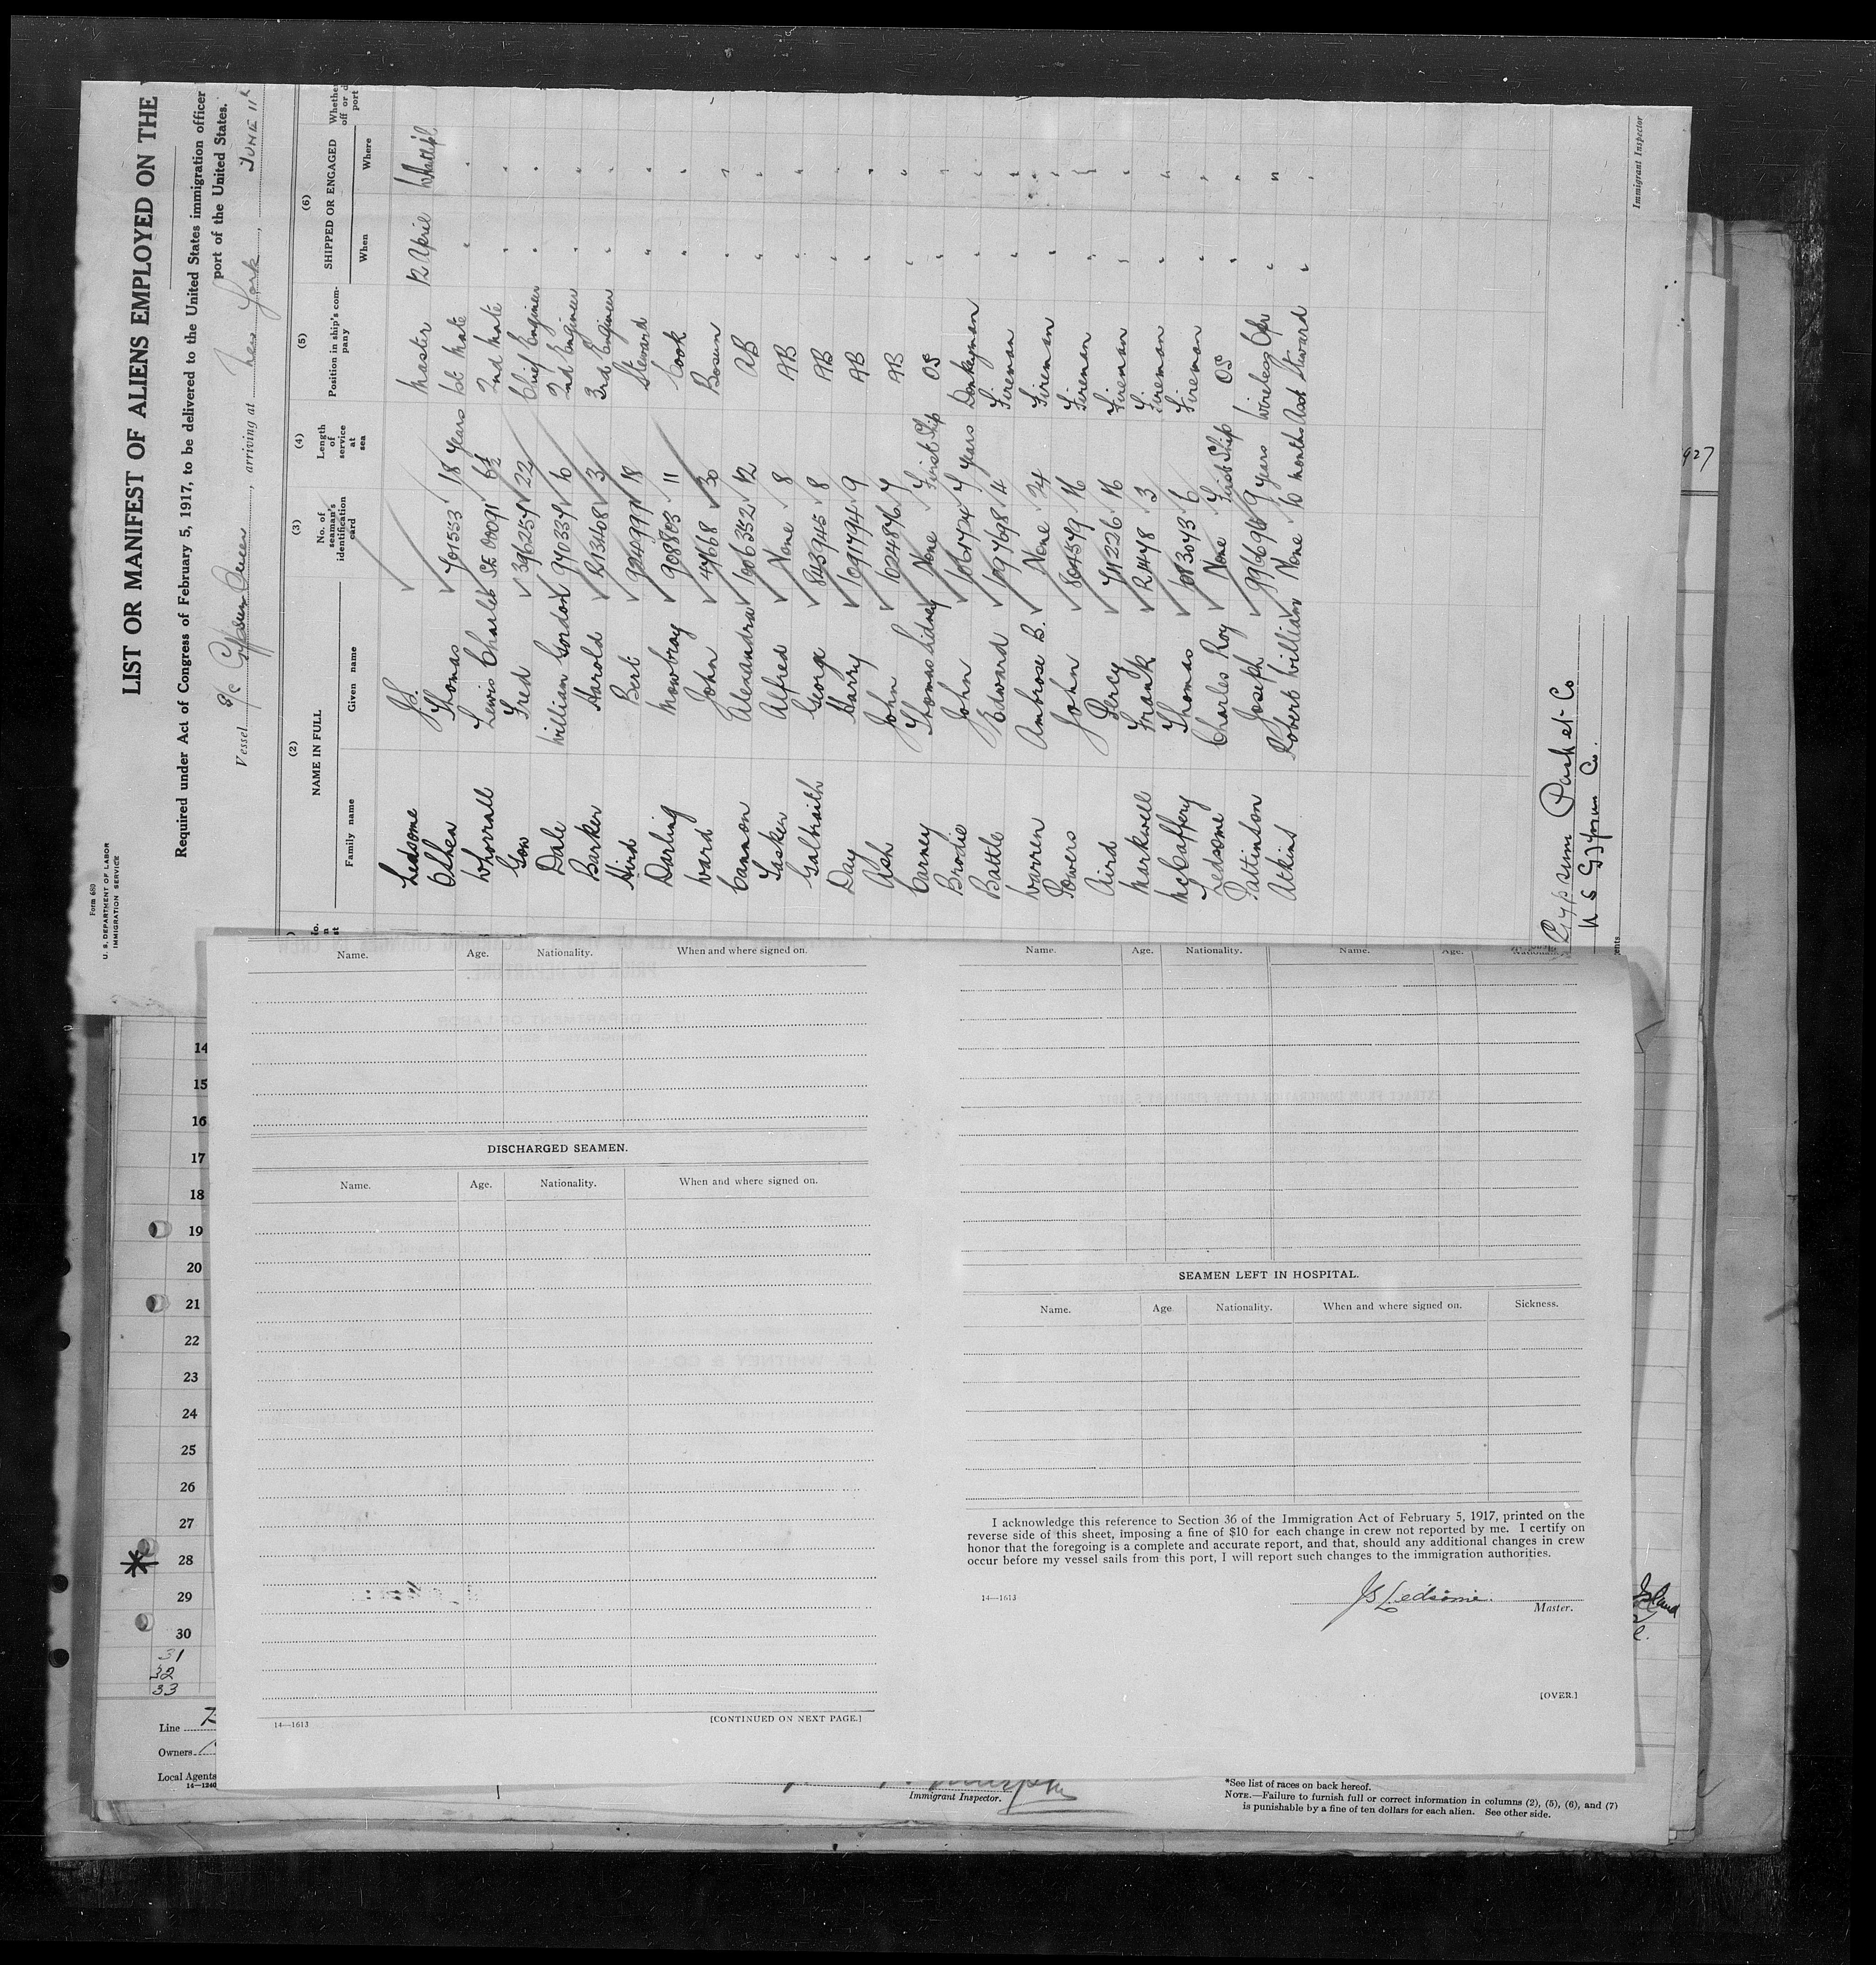 Form 680
U. S. DEPARTMENT OF LABOR
IMMIGRATION SERVICE
LIST OR MANIFEST OF ALIENS EMPLOYED ON THE
Required under Act of Congress of February 5, 1917, to be delivered to the United States immigration officer
port of the United States.
Vessel S/S Gypsum Queen, arriving at New York, JUNE 11th
(2) (3) (4) (5) (6)
NAME IN FULL No. of seaman's identification card Length of service at sea Position in ship's company SHIPPED OR ENGAGED
Family name Given name When Where
Ledsome J.S. Master 12 April
Thomas 701553 18 years 1st Mate " "
Whorrall Lewis Charles 6½ 2nd Mate " "
Gow Fred 396257 22 Chief Engineer " "
Dale William Gordon 940337 16 2nd Engineer " "
Barker Harold 213408 3 3rd Engineer " "
Hird Bert 924999 18 Steward " "
Darling Mowbray 908803 11 Cook " "
Ward John 47668 30 Bosun " "
Cannon Alexandra 1006352 12 AB " "
Tasker Alfred None 8 AB " "
Galbraith George 843945 8 AB " "
Day Harry 1091794 9 AB " "
Ash John 1024876 7 AB " "
Carney Thomas Sidney None First Ship OS " "
Brodie John 1061724 7 years Donkeyman " "
Battle Edward 1097698 4 Fireman " "
Warren Ambrose B. None 34 Fireman " "
Powers John 804579 16 Fireman " "
Aird Percy 711226 16 Fireman " "
Markwell Frank R21478 3 Fireman " "
McCaffery Thomas 1083043 6 Fireman " "
Ledsome Charles Roy None First Ship OS " "
Pattinson Joseph 996696 9 years Wireless Opr " "
Atkins Robert William None 10 months Asst Steward " "
Gypsum Packet Co
U S Gypsum Co.
Immigrant Inspector
Name. Age. Nationality. When and where signed on.
DISCHARGED SEAMEN.
Name. Age. Nationality. When and where signed on.
14—1613
[CONTINUED ON NEXT PAGE.]
Name. Age. Nationality. Name. Age.
SEAMEN LEFT IN HOSPITAL.
Name. Age Nationality. When and where signed on. Sickness.
I acknowledge this reference to Section 36 of the Immigration Act of February 5, 1917, printed on the
reverse side of this sheet, imposing a fine of $10 for each change in crew not reported by me. I certify on
honor that the foregoing is a complete and accurate report, and that, should any additional changes in crew
occur before my vessel sails from this port, I will report such changes to the immigration authorities.
14—1613
JS Ledsome.
Master.
[OVER.]
14
15
16
17
18
19
20
21
22
23
24
25
26
27
28
29
30
31
32
33
Line
Owners
Local Agents
14—1240
Island
Immigrant Inspector.
*See list of races on back hereof.
NOTE.—Failure to furnish full or correct information in columns (2), (5), (6), and (7)
is punishable by a fine of ten dollars for each alien. See other side.